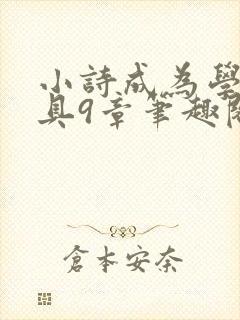 小詩成為學
具9章筆趣閣
倉本安奈